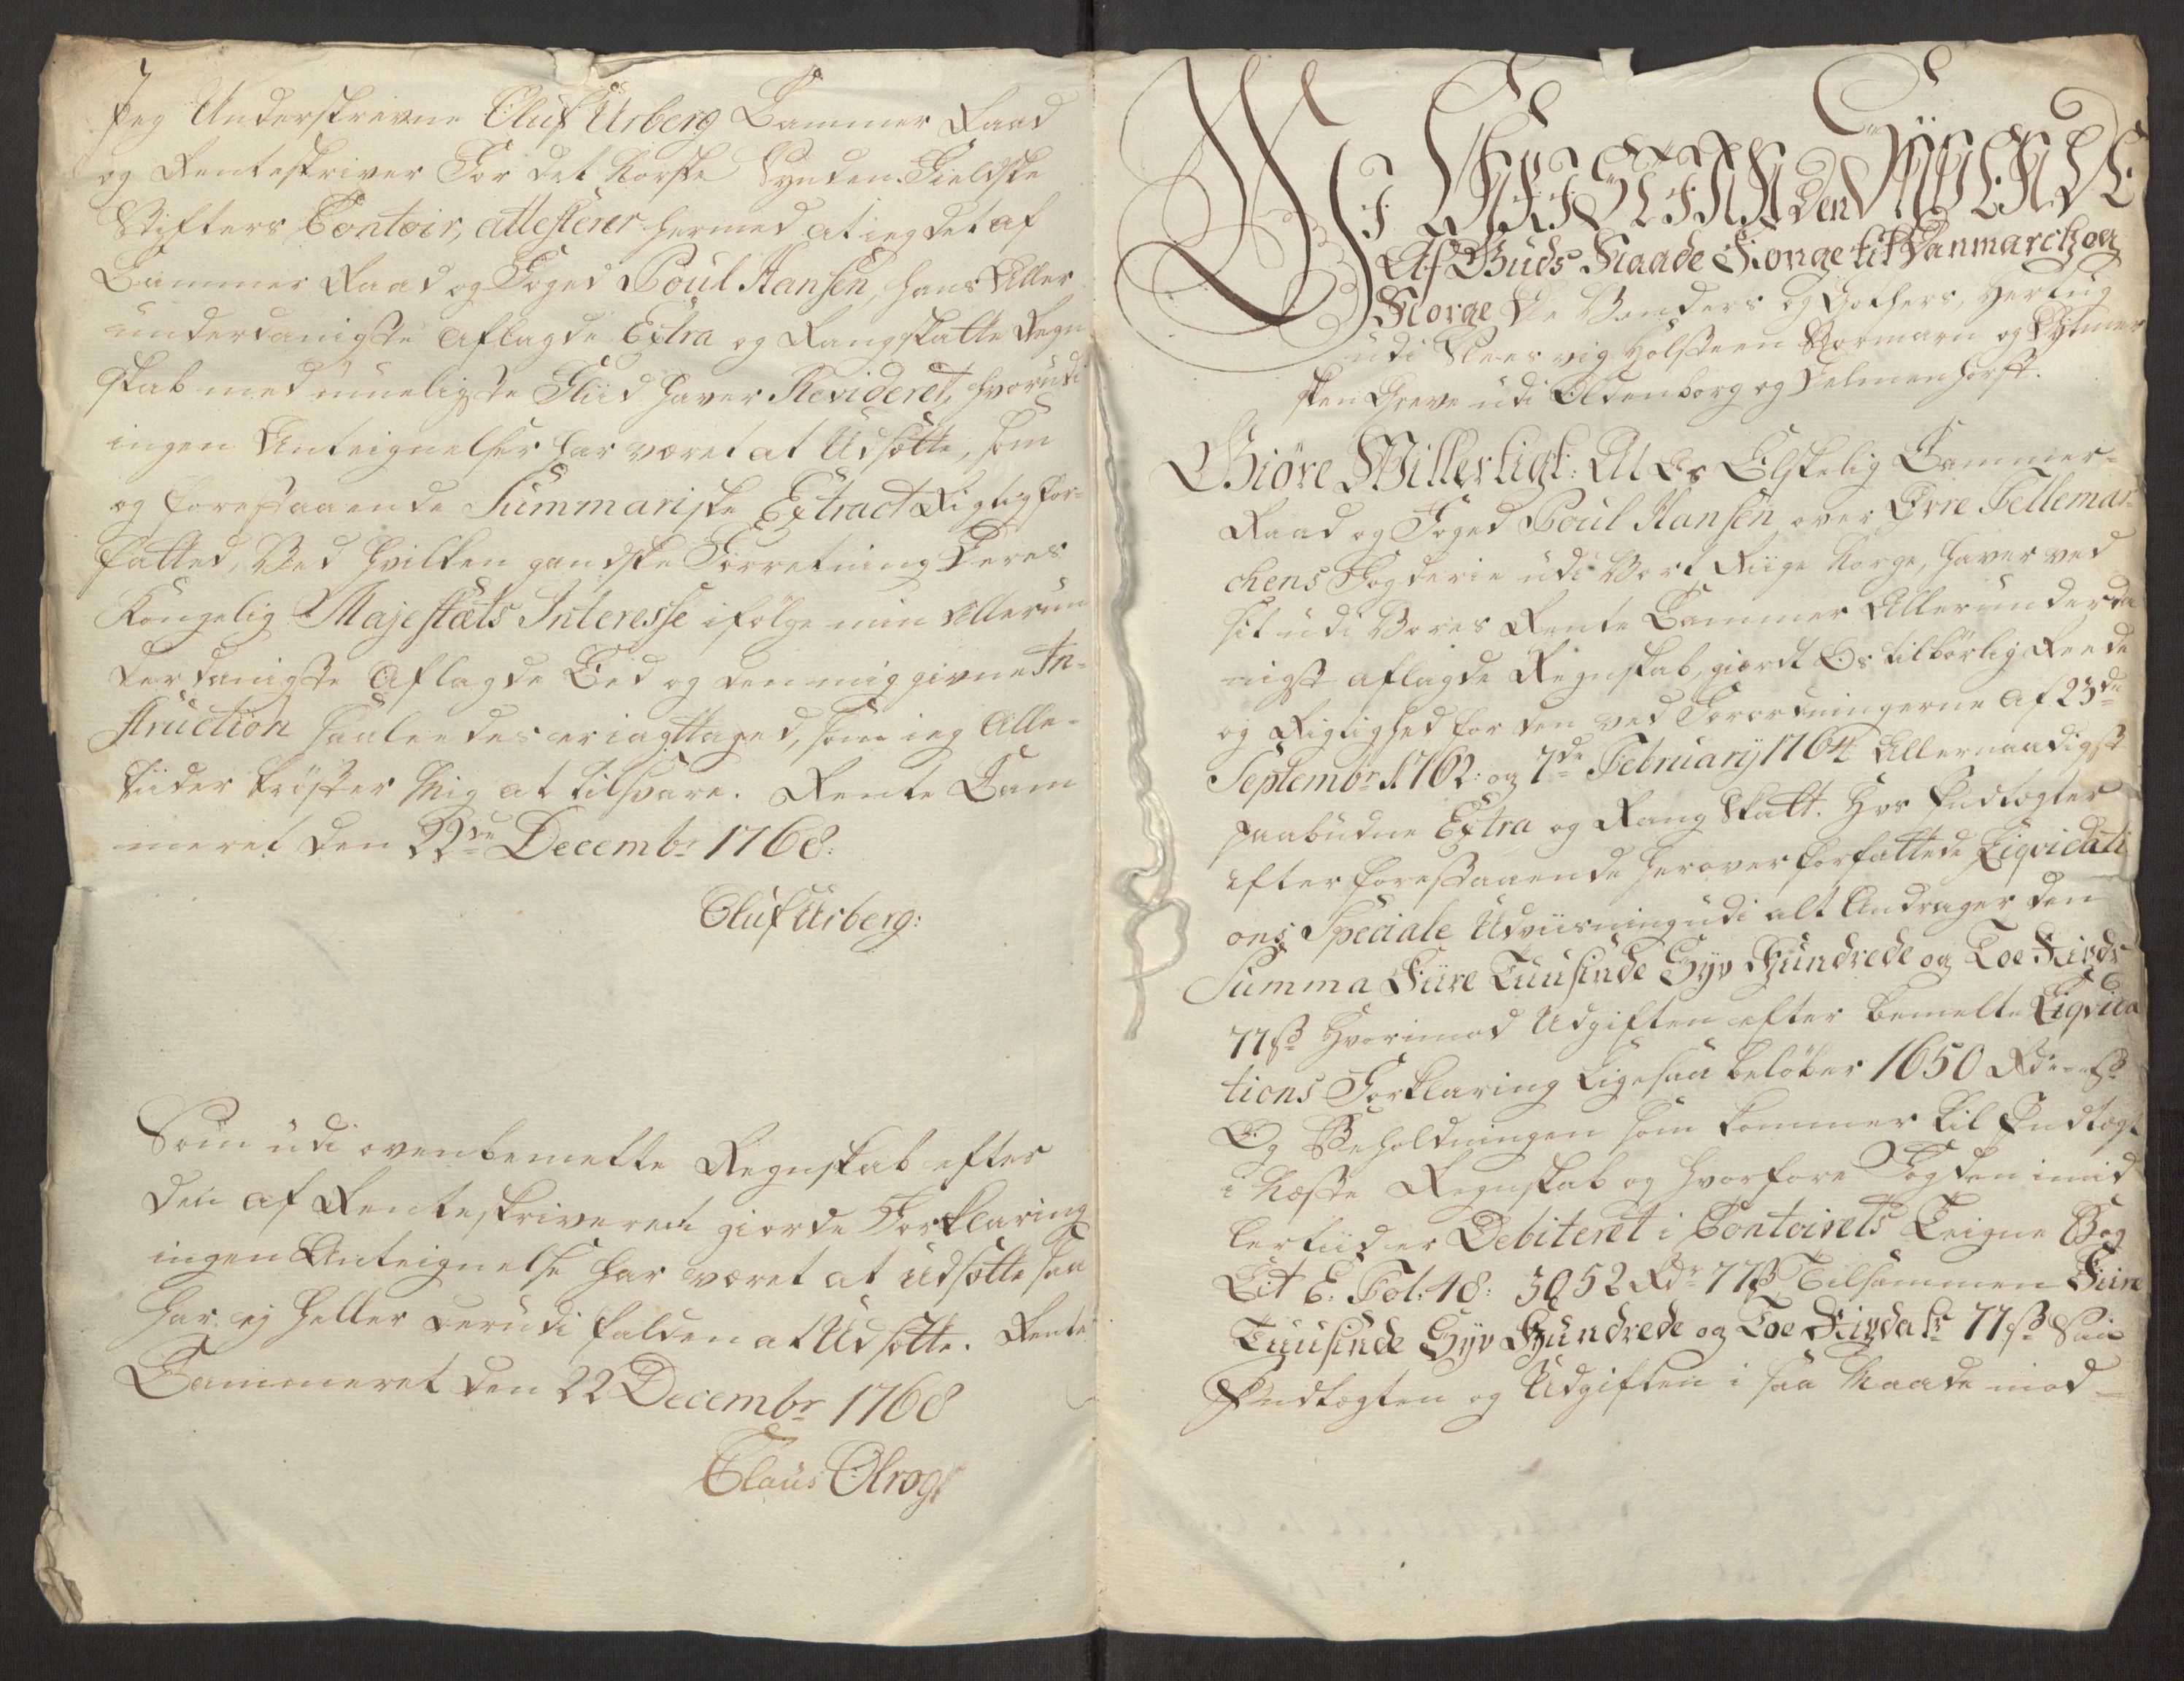 Jeg Underskrevne Oluf Urberg Cammer Raad
og Renteskriver For det Norske Synden-Fieldske
Stifters Contoir, attesterer hermed at ieg det af
Cammer Raad og Foged Poul Hansen, hans Aller
underdanigste aflagde Extra og Rangskatte Regn
skab med mueligste Fliid haver Revideret, hvorudi
ingen Anteignelser har været at Udsætte, som
og forestaaende Summariske Extract Rigtig for-
fatted, Ved hvilken gandske Forretning Deres
Kongelig Majestæts Interesse ifölge min Allerun
derdanigste Aflagde Eed og den mig givne In-
struction saaledes er iagttaged, som ieg Alle-
tiider tröster Mig at tilsvare. Rente Cam
meret den 22de Decembr 1768:
Oluf Urberg:
Som udi ovenbemelte Regnskab efter
den af Renteskriveren giorde Forklaring
ingen Anteignelse har været at udsætte saa
har ej heller derudi falden at Udsætte. Rente
Cammeret den 22 Decembr 1768
Claus Olrog
Wi CHRISTIAN den SYVENDE
Af Guds Naade Konge til Danmarck og
Norge De Venders og Gothers, Hertug
udi Slesvig Holsteen Stormarn og Dytmer
sken Greve udi Oldenborg og Delmenhorst.
Giöre Witterligt: At Os Elskelig Cammer-
Raad og Foged Poul Hansen over Övre Tellemar-
chens Fogderie udi Vort Riige Norge, haver ved
sit udi Vores Rente Cammer Allerunderda
nigst aflagde Regnskab, giordt Os tilbörlig Reede
og Rigtighed for den ved Forordningerne af 23de
Septembr 1762: og 7de Februarij 1764 Allernaadigst
paabudne Extra og Rang Skatt. Hvs Indtægter
efter forestaaende herover forfattede Liqvidati
ons Speciale Udviisning udi alt Andrager den
Summa Fiire Tuusinde Syv Hundrede og Toe Rixdr
77 s Hvorimod Udgiften efter bemelte Liqvida
tions Forklaring Ligesaa belöber 1650 Rdr - s
Og Beholdningen som kommer til Indtægt
i Næste Regnskab og hvorfore Fogden imid
lertiid er Debiteret i Contoirets Teigne Bog
Lit E: Fol: 48: 3052 Rdr 77 s Tilsammen Fiire
Tuusinde Syv Hundrede og Toe Rixdalr 77 s Saa
Indtægten og Udgiften i saa Maade mod-